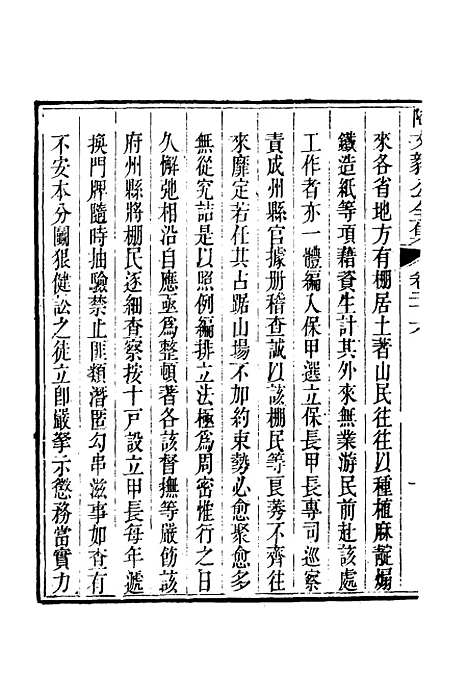 文毅公全集 卷二十六
來各省地方有棚居土著山民往往以種植麻靛煽
鐵造紙等項藉資生計其外來無業游民前赴該處
工作者亦一體編入保甲選立保長甲長專司巡察
責成州縣官據册稽查誠以該棚民等良莠不齊往
來靡定若任其占踞山場不加約束勢必愈聚愈多
無從究詰是以照例編排立法極爲周密惟行之日
久懈弛相沿自應亟爲整頓著各該督撫等嚴飭該
府州縣將棚民逐細查察按十戸設立甲長每年遞
換門牌隨時抽驗禁止匪類潛匿勾串滋事如查有
不安本分鬬狠健訟之徒立卽嚴拏示懲務當實力